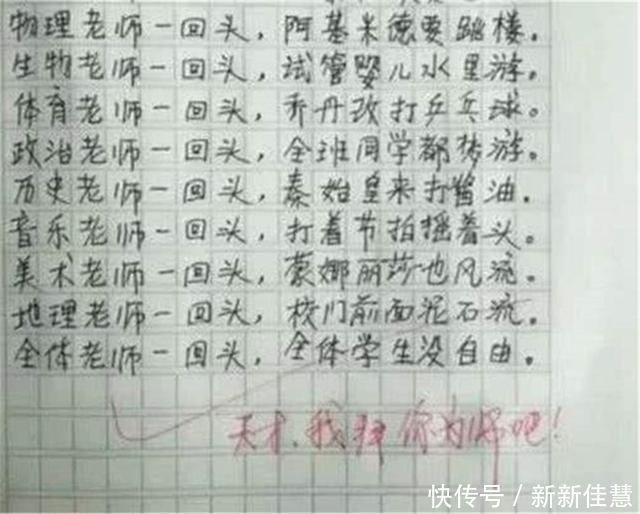 物理老师一回头，阿基米德要跳楼。
生物老师一回头，试管婴儿水里游。
体育老师一回头，乔丹改打乒乓球。
政治老师一回头，全班同学都梦游。
历史老师一回头，秦始皇来打酱油。
音乐老师一回头，打着节拍摇着头。
美术老师一回头，蒙娜丽莎也风流。
地理老师一回头，校门前面泥石流。
全体老师一回头，全体学生没自由。
天才，我拜你为师吧！
快传号／新新佳慧